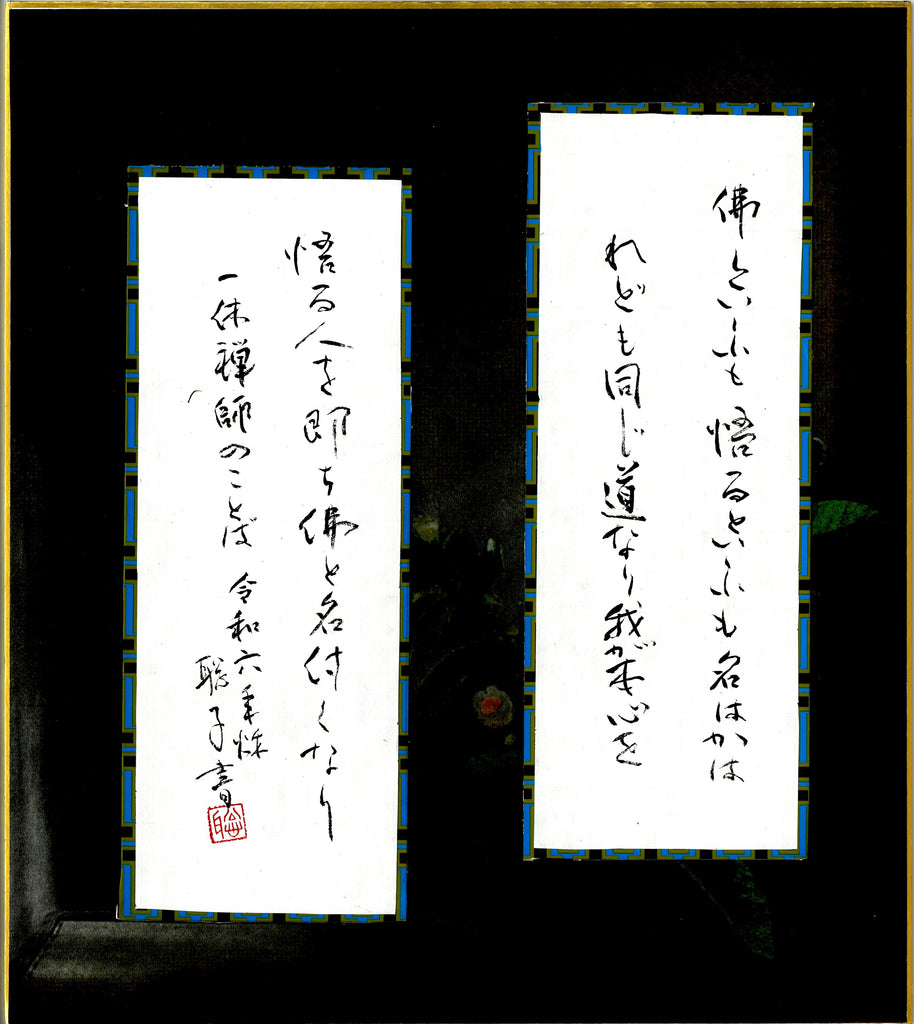 佛といふも 悟るといふも名はかは
れども同じ道なり我が本心を
悟る人を即ち佛と名付くなり
一休禅師のことば 令和六年秋
聡子書